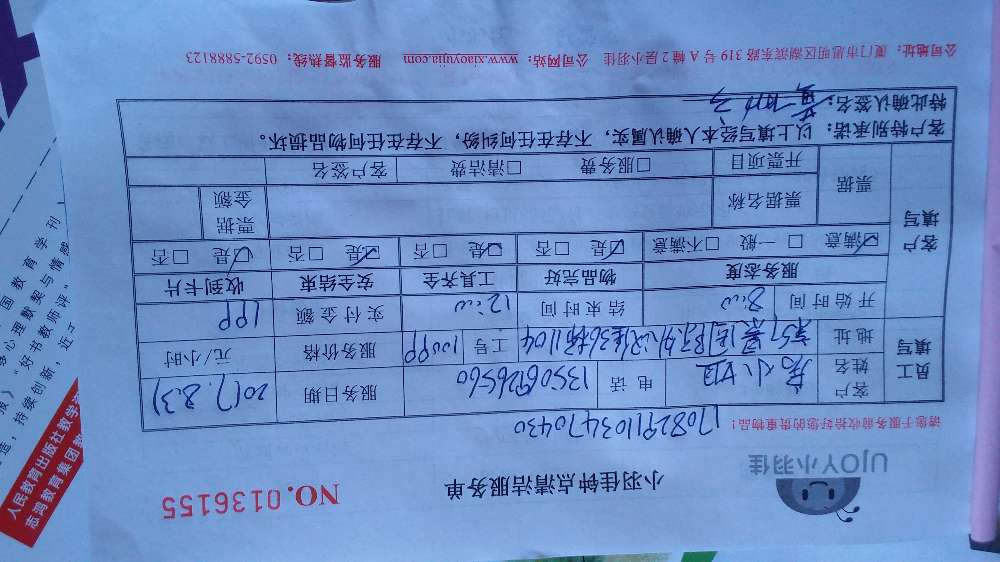 UJOY小羽佳
小羽佳钟点清洁服务单
NO.0136155
1708291103470430
请您于服务前收拾好您的贵重物品!
员工填写
客户姓名 小姐 电话 13506926560 服务日期 2017.8.31
地址 36栋1104 工号 服务价格 元/小时
开始时间 8:00 结束时间 12:00 实付金额
客户填写
服务态度 物品完好 工具齐全 安全结束 收到卡片
☑满意 □一般 □不满意 ☑是 □否 ☑是 □否 ☑是 □否 ☑是 □否
票据 票据名称 票据金额
开票项目 □服务费 □清洁费 客户签名
客户特别承诺:以上填写经本人确认属实,不存在任何纠纷,不存在任何物品损坏。
特此确认签名:
公司地址:厦门市思明区湖滨东路319号A幢2层小羽佳 公司网站:www.xiaoyujia.com 服务监督热线:0592-5888123
人民教育出版社教学
志鸿教育集团
国教育学刊
心理默契与情感
》"好书教师评"
造,持续创新,近